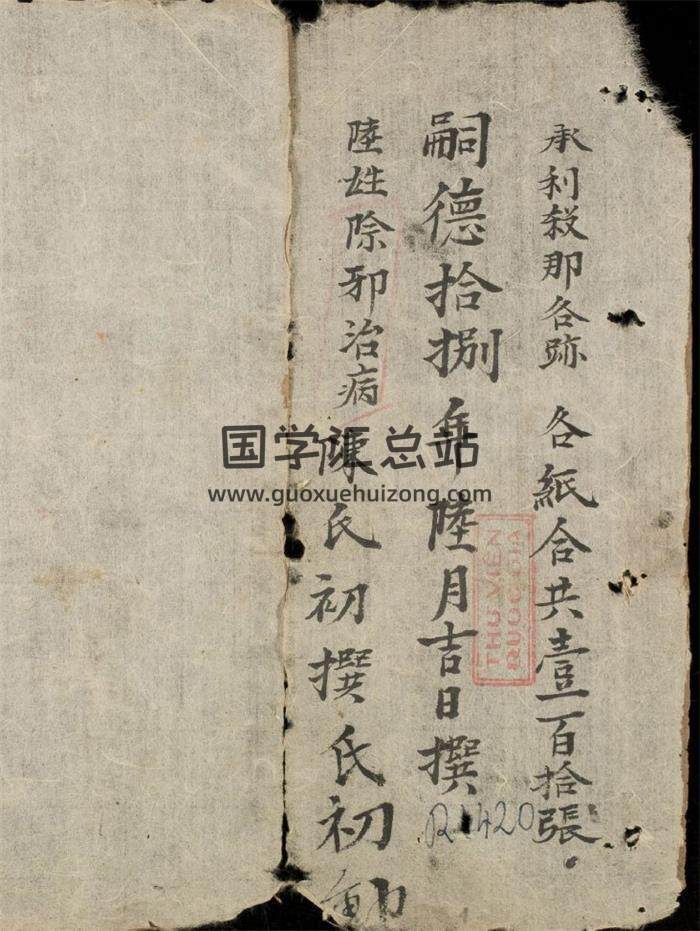 承利殺那各跡 各紙合共壹百拾張
嗣德拾捌年陸月吉日撰
陸姓除邪治病陳氏初撰氏初
国学 总站
www.guoxuehuizong.com
THƯ VIỆN
QUỐC GIA
R1420